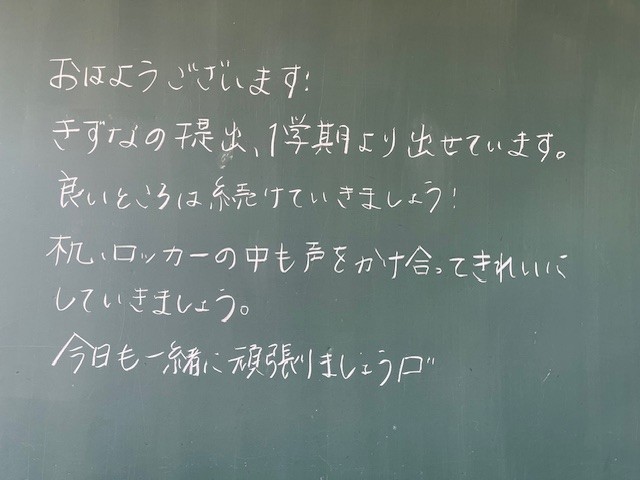 おはようございます!
きずなの提出、1学期より出せています。
良いところは続けていきましょう!
机、ロッカーの中も声をかけ合ってきれいに
していきましょう。
今日も一緒に頑張りましょう